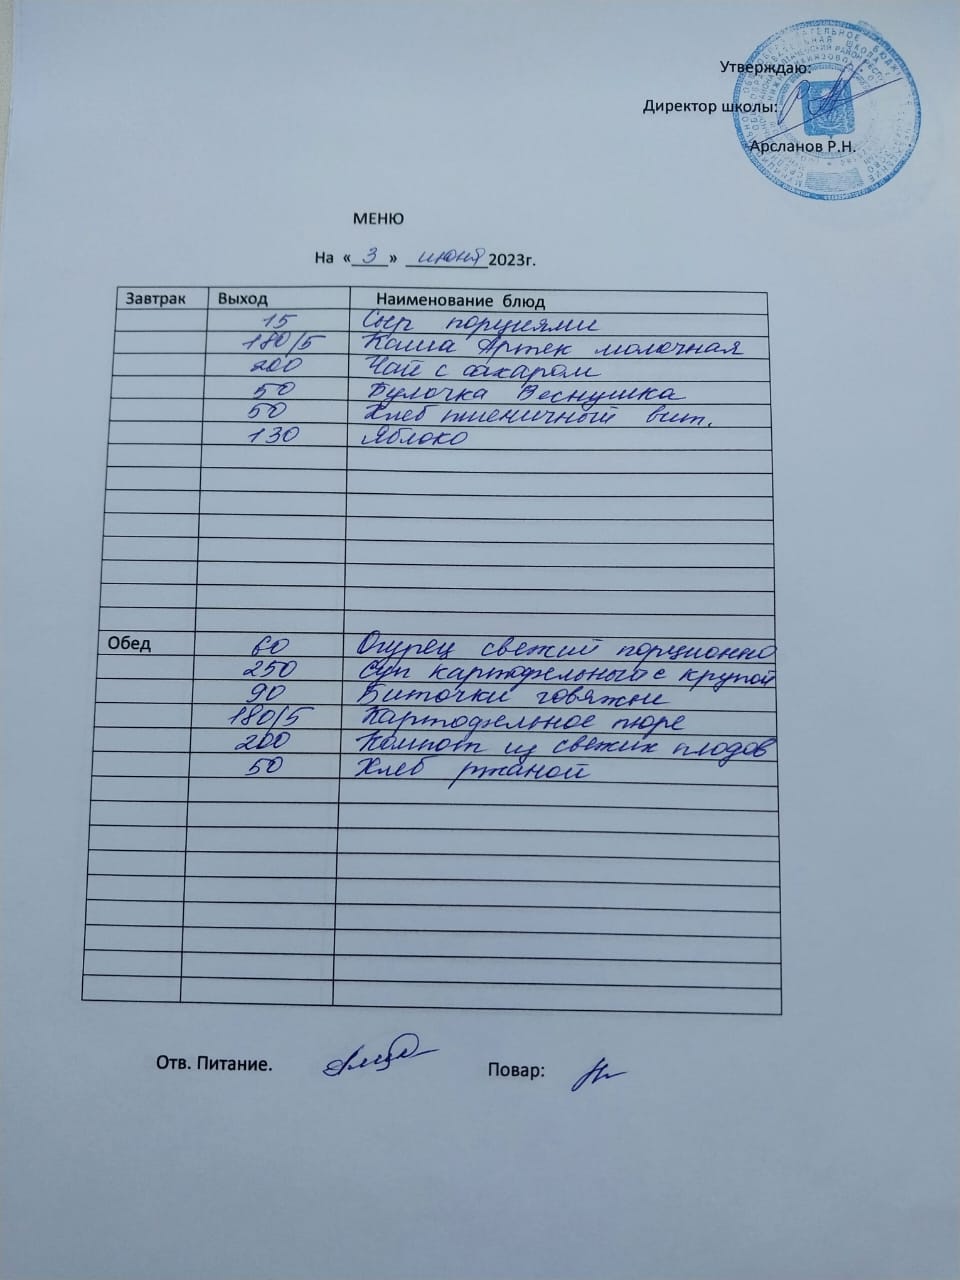 Утверждаю:
Директор школы:
Арсланов Р.Н.
МЕНЮ
На «3» июня 2023г.
Завтрак Выход Наименование блюд
15 Сыр порциями
180/5 Каша Артек молочная
200 Чай с сахаром
50 Булочка Веснушка
50 Хлеб пшеничный вит.
130 Яблоко
Обед 60 Огурец свежий порционно
250 Суп картофельный с крупой
90 Биточки говяжьи
180/5 Картофельное пюре
200 Компот из свежих плодов
50 Хлеб ржаной
Отв. Питание.
Повар: